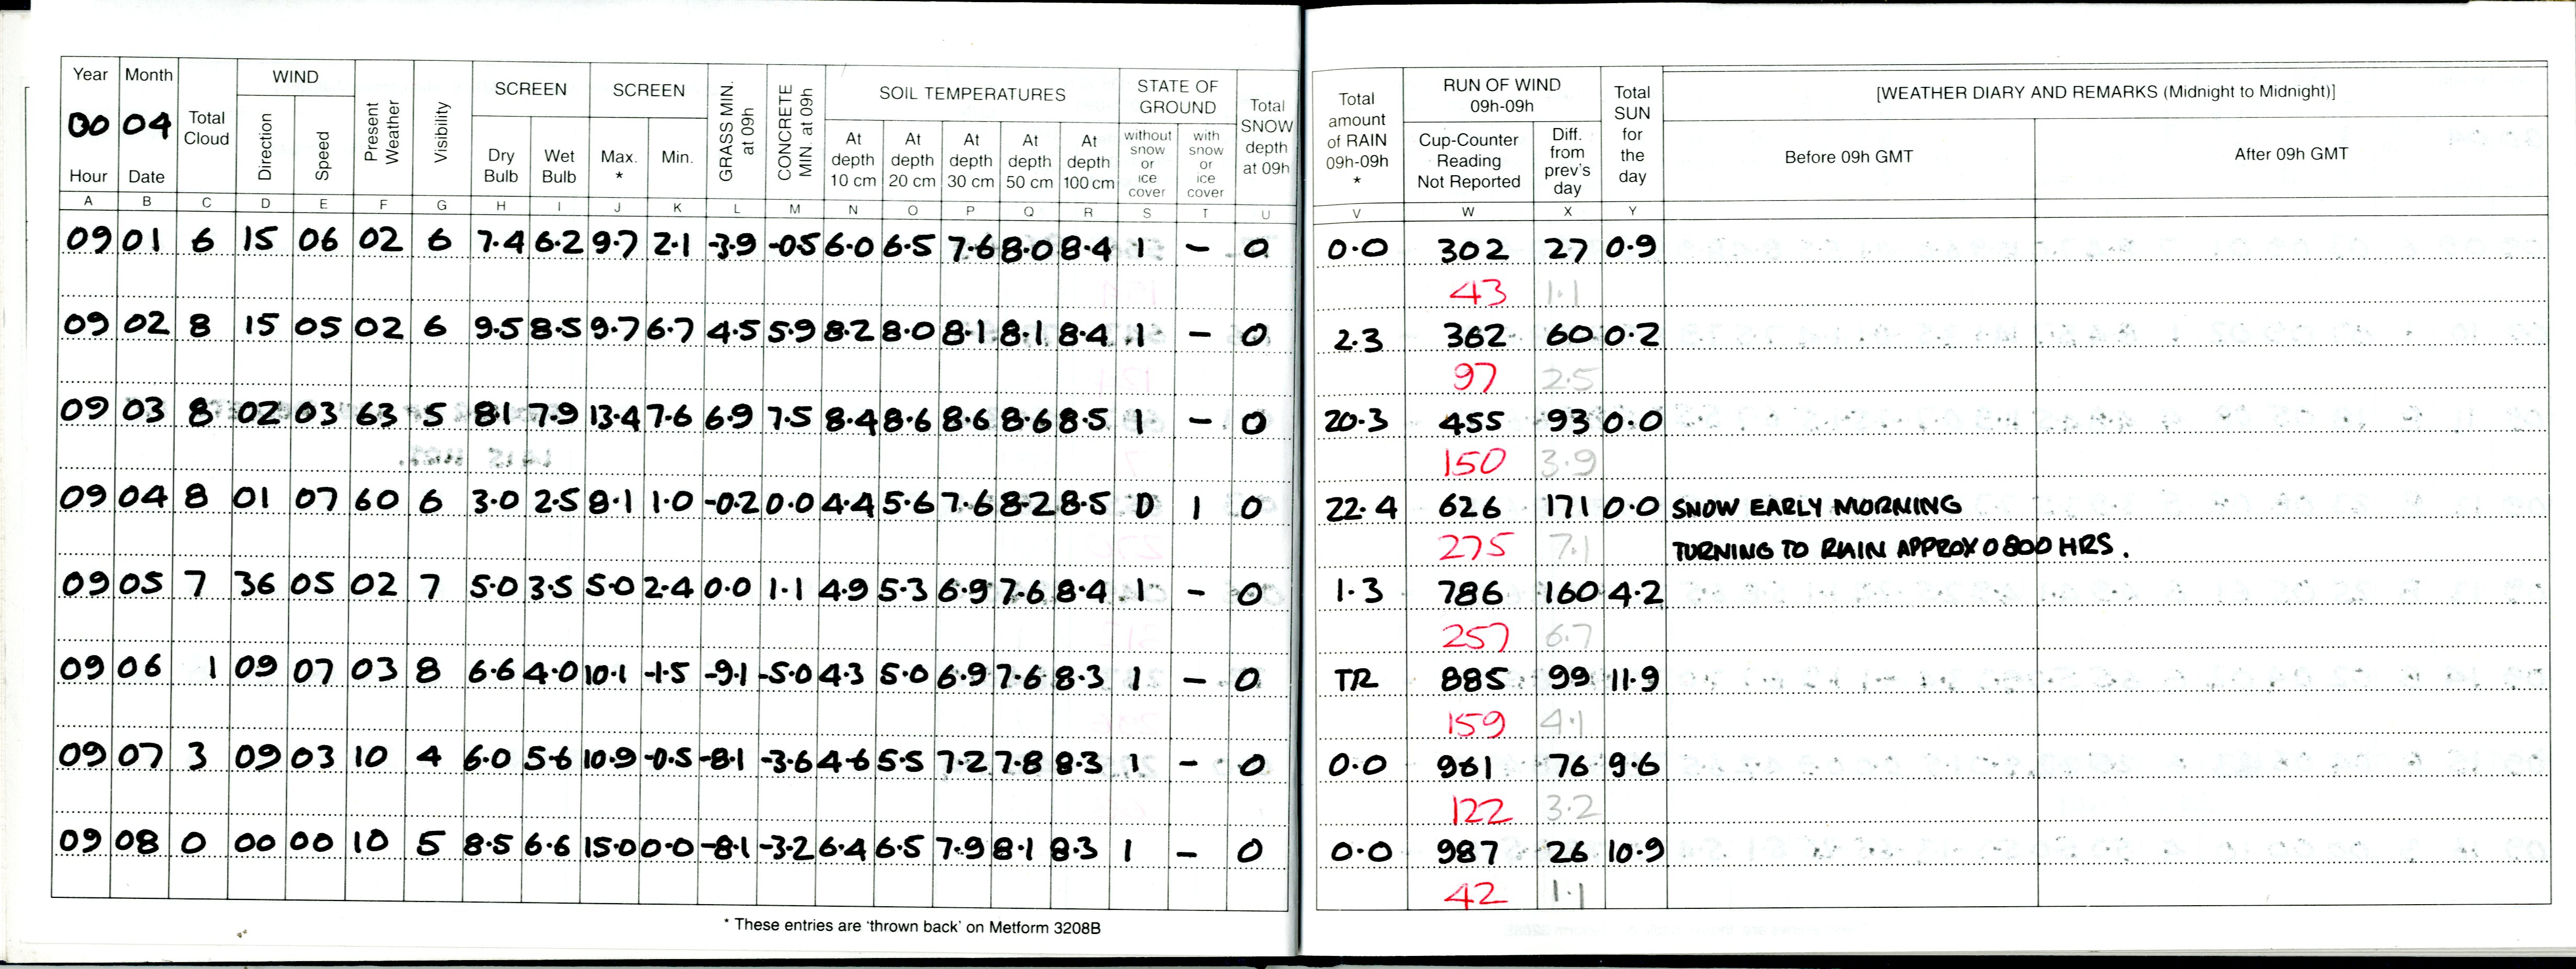 Year Month Total Cloud WIND Present Weather Visibility SCREEN SCREEN GRASS MIN. at 09h CONCRETE MIN. at 09h SOIL TEMPERATURES STATE OF GROUND Total SNOW depth at 09h Total amount of RAIN 09h-09h * RUN OF WIND 09h-09h Total SUN for the day [WEATHER DIARY AND REMARKS (Midnight to Midnight)]
00 04
Hour Date Direction Speed Dry Bulb Wet Bulb Max. * Min. At depth 10 cm At depth 20 cm At depth 30 cm At depth 50 cm At depth 100 cm without snow or ice cover with snow or ice cover Cup-Counter Reading Not Reported Diff. from prev's day Before 09h GMT After 09h GMT
A B C D E F G H I J K L M N O P Q R S T U V W X Y
09 01 6 15 06 02 6 7.4 6.2 9.7 2.1 -3.9 -0.5 6.0 6.5 7.6 8.0 8.4 1 - 0 0.0 302 27 0.9
43 1.1
09 02 8 15 05 02 6 9.5 8.5 9.7 6.7 4.5 5.9 8.2 8.0 8.1 8.1 8.4 1 - 0 2.3 362 60 0.2
97 2.5
09 03 8 02 03 63 5 8.1 7.9 13.4 7.6 6.9 7.5 8.4 8.6 8.6 8.6 8.5 1 - 0 20.3 455 93 0.0
150 3.9
09 04 8 01 07 60 6 3.0 2.5 8.1 1.0 -0.2 0.0 4.4 5.6 7.6 8.2 8.5 0 1 0 22.4 626 171 0.0 SNOW EARLY MORNING
275 7.1 TURNING TO RAIN APPROX 0800 HRS.
09 05 7 36 05 02 7 5.0 3.5 5.0 2.4 0.0 1.1 4.9 5.3 6.9 7.6 8.4 1 - 0 1.3 786 160 4.2
257 6.7
09 06 1 09 07 03 8 6.6 4.0 10.1 -1.5 -9.1 -5.0 4.3 5.0 6.9 7.6 8.3 1 - 0 TR 885 99 11.9
159 4.1
09 07 3 09 03 10 4 6.0 5.6 10.9 -0.5 -8.1 -3.6 4.6 5.5 7.2 7.8 8.3 1 - 0 0.0 961 76 9.6
122 3.2
09 08 0 00 00 10 5 8.5 6.6 15.0 0.0 -8.1 -3.2 6.4 6.5 7.9 8.1 8.3 1 - 0 0.0 987 26 10.9
42 1.1
* These entries are 'thrown back' on Metform 3208B